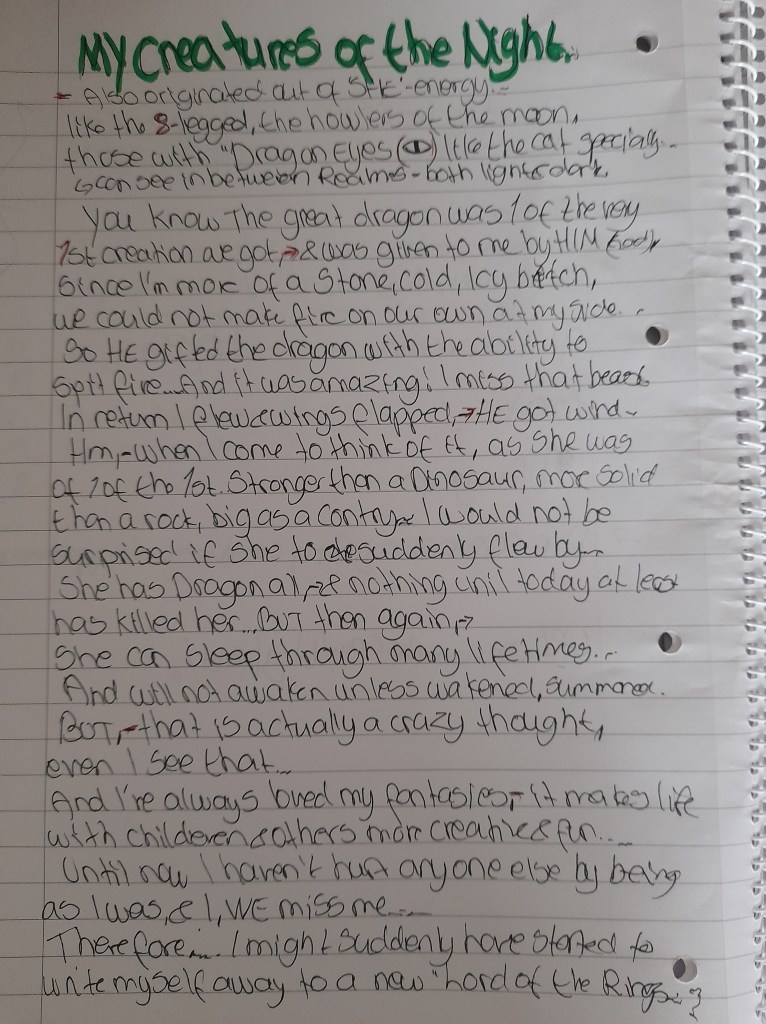 My creatures of the Night...
- Also originated out of "SHE"-energy.-
like the 8-legged, the howlers of the moon,
those with "Dragon Eyes () like the cat specialy..
↳ can see in between Realms - both light & dark.
You know The great dragon was 1 of the very
1st creation we got, → & was given to me by HIM
Since I'm more of a Stone, cold, Icy bitch,
we could not make fire on our own at my side. -
So HE gifted the dragon with the ability to
spit fire... And it was amazing! I miss that beast.
In return I flew & wings flapped, → HE got wind~
Hm,- when I come to think of it, as She was
of 1 of the 1st. Stronger than a Dinosaur, more solid
than a rock, big as a contry~ I would not be
surprised if she to suddenly flew by~
She has Dragon all, → & nothing unil today at least
has killed her... BUT then again, →
She can sleep through many lifetimes...
And will not awaken unless wakened, summoned.
BUT, - that is actually a crazy thought,
even I see that...
And I've always loved my fantasies, - it makes life
with childeren & others more creative & fun....
Until now I haven't hurt anyone else by being
as I was, & I, WE miss me.....
Therefore.... I might suddenly have started to
write myself away to a new "hord of the Rings~?